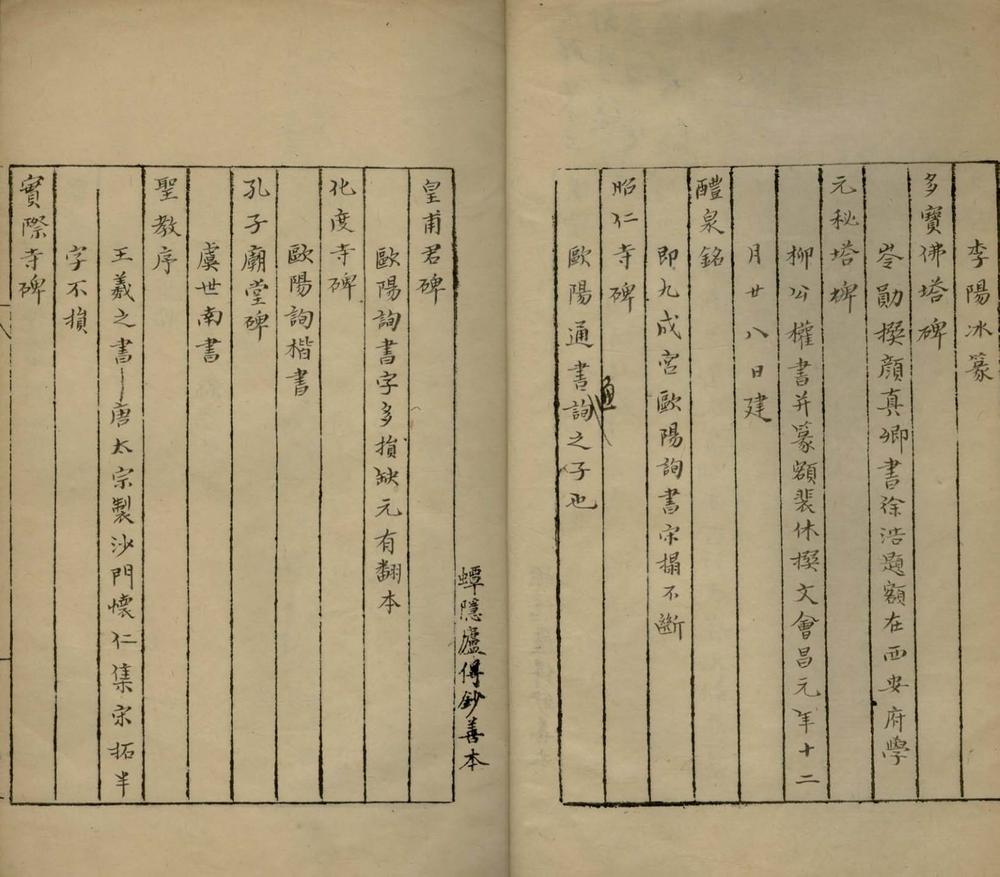 李陽冰篆
多寶佛塔碑
岑勛撰顔真卿書徐浩題額在西安府學
元秘塔碑
柳公權書并篆額裴休撰文會昌元年十二
月廿八日建
醴泉銘
即九成宮歐陽詢書宋榻不斷
昭仁寺碑
歐陽通書詢之子也
通
蟫隱廬傳鈔善本
皇甫君碑
歐陽詢書字多損缺元有翻本
化度寺碑
歐陽詢楷書
孔子廟堂碑
虞世南書
聖教序
王羲之書唐太宗製沙門懷仁集宋拓半
字不損
實際寺碑